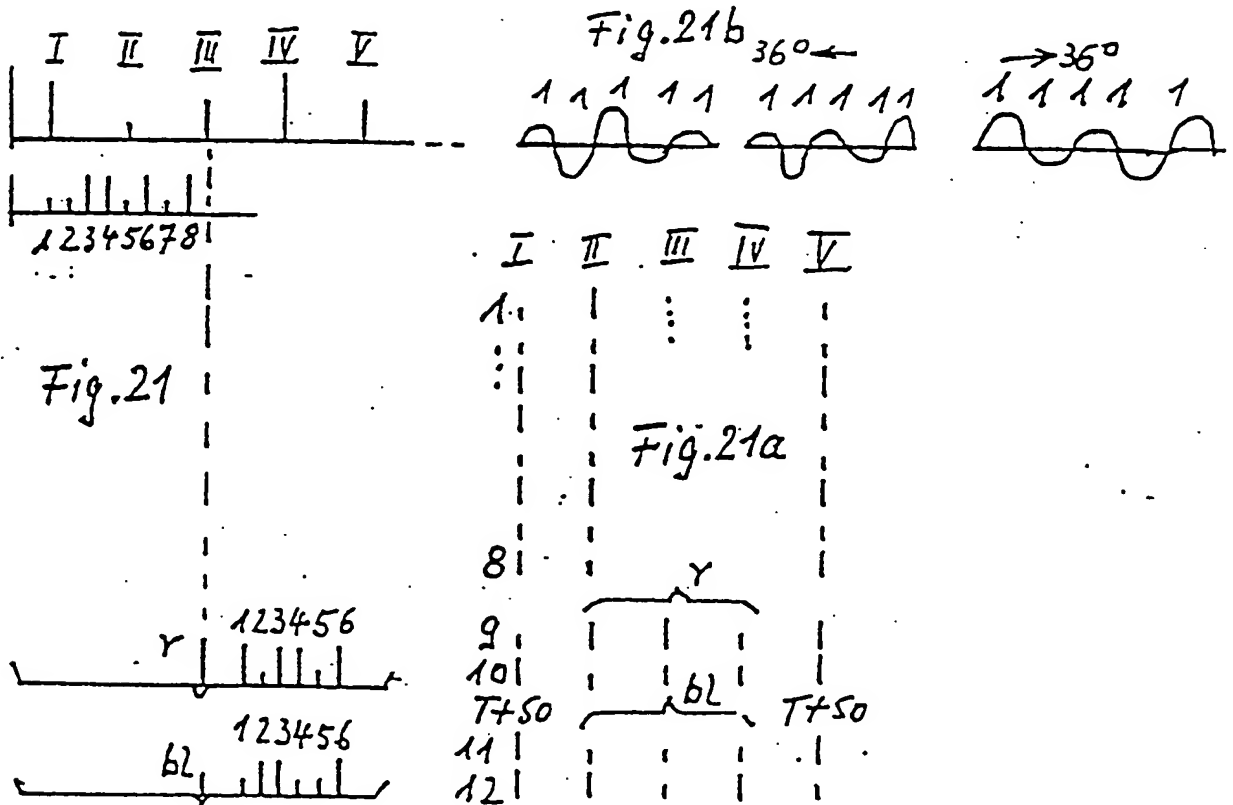 I II III IV V
Fig.21b
36° ←
→ 36°
1 1 1 1 1
1 1 1 1 1
1 1 1 1 1
12345678
Fig.21
r
123456
bl
123456
I II III IV V
1
Fig.21a
8
r
9
10
T+50 bl T+50
11
12